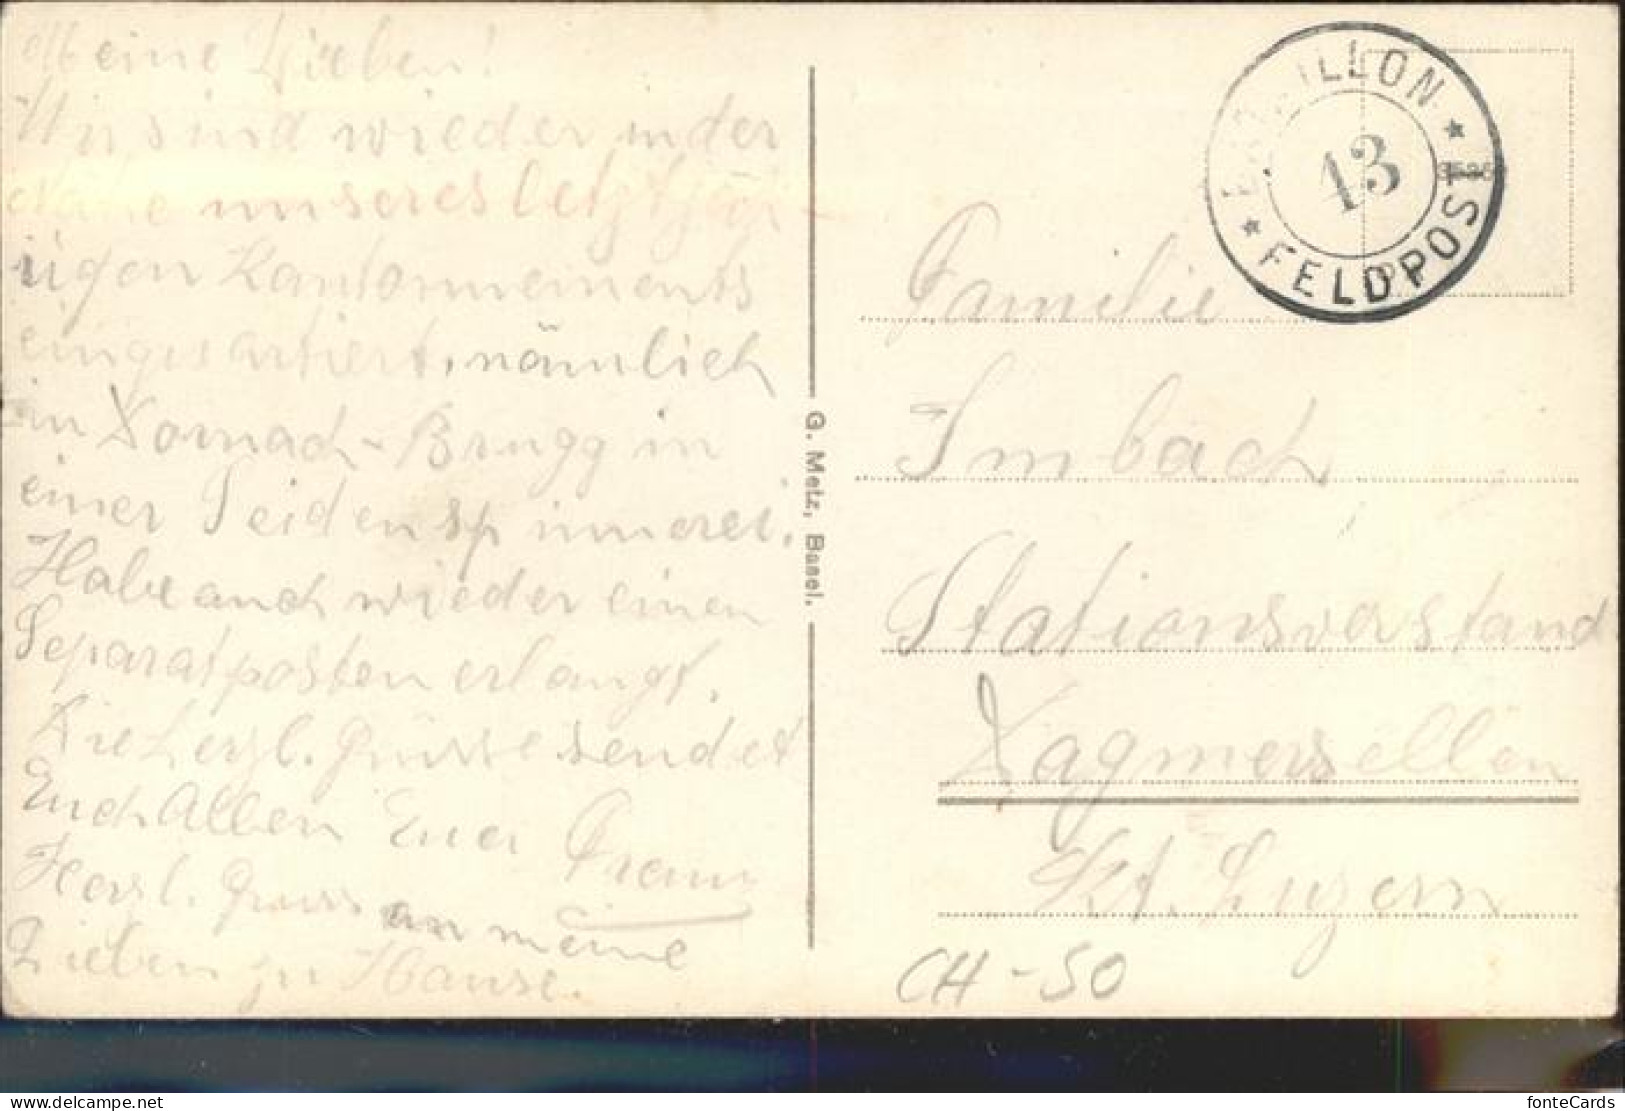 Meine Lieben!
Wir sind wieder in der
Nähe unseres letztjäh-
rigen Kantonnements
einquartiert, nämlich
in Dornach-Brugg in
einer Seidenspinnerei.
Habe auch wieder einen
Separatposten erlangt.
Die herzl. Grüsse sendet
Euch Allen Euer Franz
Herzl. Gruss an meine
Lieben zu Hause.
G. Metz, Basel.
BATAILLON
13
FELDPOST
Familie
Imbach
Stationsvorstand
Dagmersellen
Kt. Luzern
CH - 50
delcampe.net
fonteCards